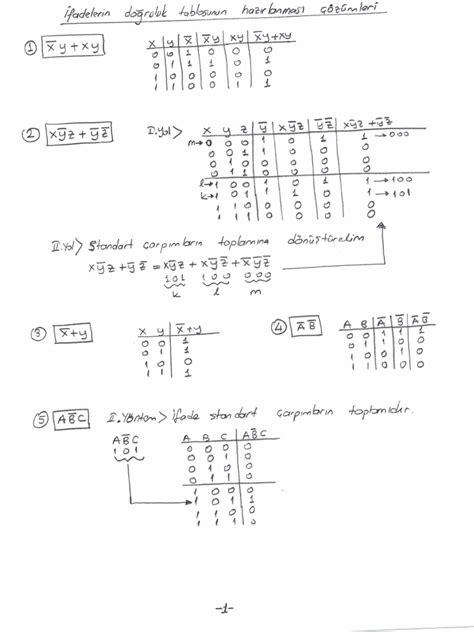 İfadelerin doğruluk tablosunun hazırlanması çözümleri
① x̅y + xy
x y x̅ x̅y xy x̅y+xy
0 0 1 0 0 0
0 1 1 1 0 1
1 0 0 0 0 0
1 1 0 0 1 1
② xy̅z + y̅z̅
I.yol> x y z y̅ xy̅z y̅z̅ xy̅z + y̅z̅
m→ 0 0 0 1 0 1 1 → 000
0 0 1 1 0 0 0
0 1 0 0 0 0 0
0 1 1 0 0 0 0
l→ 1 0 0 1 0 1 1 → 100
k→ 1 0 1 1 1 0 1 → 101
1 1 0 0 0 0 0
1 1 1 0 0 0 0
II.yol> Standart çarpımların toplamına dönüştürelim
xy̅z + y̅z̅ = xy̅z + xy̅z̅ + x̅y̅z̅
101 100 000
k l m
③ x̅+y
x y x̅+y
0 0 1
0 1 1
1 0 0
1 1 1
④ A̅B̅
A B A̅ B̅ A̅B̅
0 0 1 1 1
0 1 1 0 0
1 0 0 1 0
1 1 0 0 0
⑤ AB̅C
II.Yöntem> İfade standart çarpımların toplamıdır.
AB̅C
101
A B C AB̅C
0 0 0 0
0 0 1 0
0 1 0 0
0 1 1 0
1 0 0 0
1 0 1 1
1 1 0 0
1 1 1 0
-1-